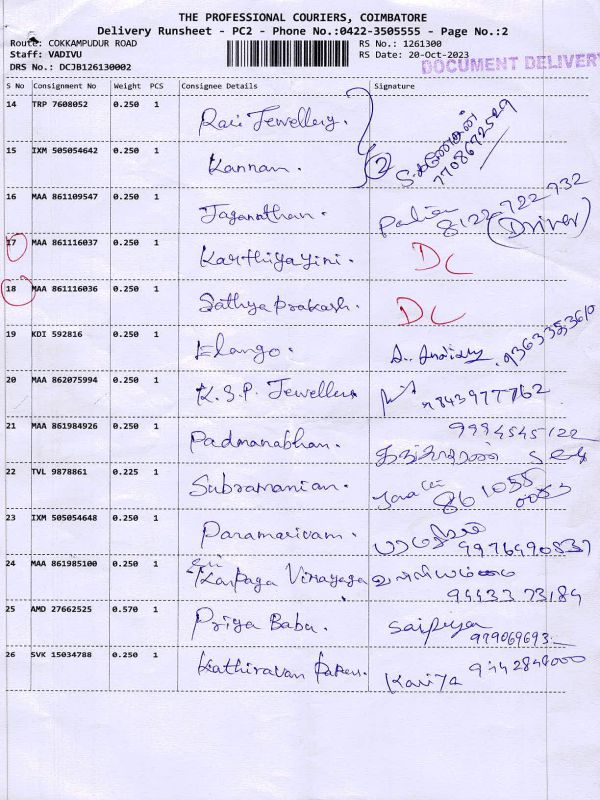 THE PROFESSIONAL COURIERS, COIMBATORE
Delivery Runsheet - PC2 - Phone No.:0422-3505555 - Page No.:2
Route: COKKAMPUDUR ROAD RS No.: 1261300
Staff: VADIVU RS Date: 20-Oct-2023
DRS No.: DCJB126130002 DOCUMENT DELIVERY
S No Consignment No Weight PCS Consignee Details Signature
14 TRP 7608052 0.250 1 Ravi Jewellery.
15 IXM 505054642 0.250 1 Kannan. 2 7708672529
16 MAA 861109547 0.250 1 Jaganathan. 8122-722-732
(Driver)
17 MAA 861116037 0.250 1 Karthiyayini. DC
18 MAA 861116036 0.250 1 Sathya prakash. DC
19 KDI 592816 0.250 1 Elango.
20 MAA 862075994 0.250 1 K.S.P. Jewellers 9843977762
21 MAA 861984926 0.250 1 Padmanabhan. 9994545122
22 TVL 9878861 0.225 1 Subramanian. 861055
0083
23 IXM 505054648 0.250 1 Paramasivam. 9976490837
24 MAA 861985100 0.250 1 Sri Karpaga Vinayaga 94433 73184
25 AMD 27662525 0.570 1 Priya Babu. Saipriya
979069693
26 SVK 15034788 0.250 1 Kathiravan Kavi